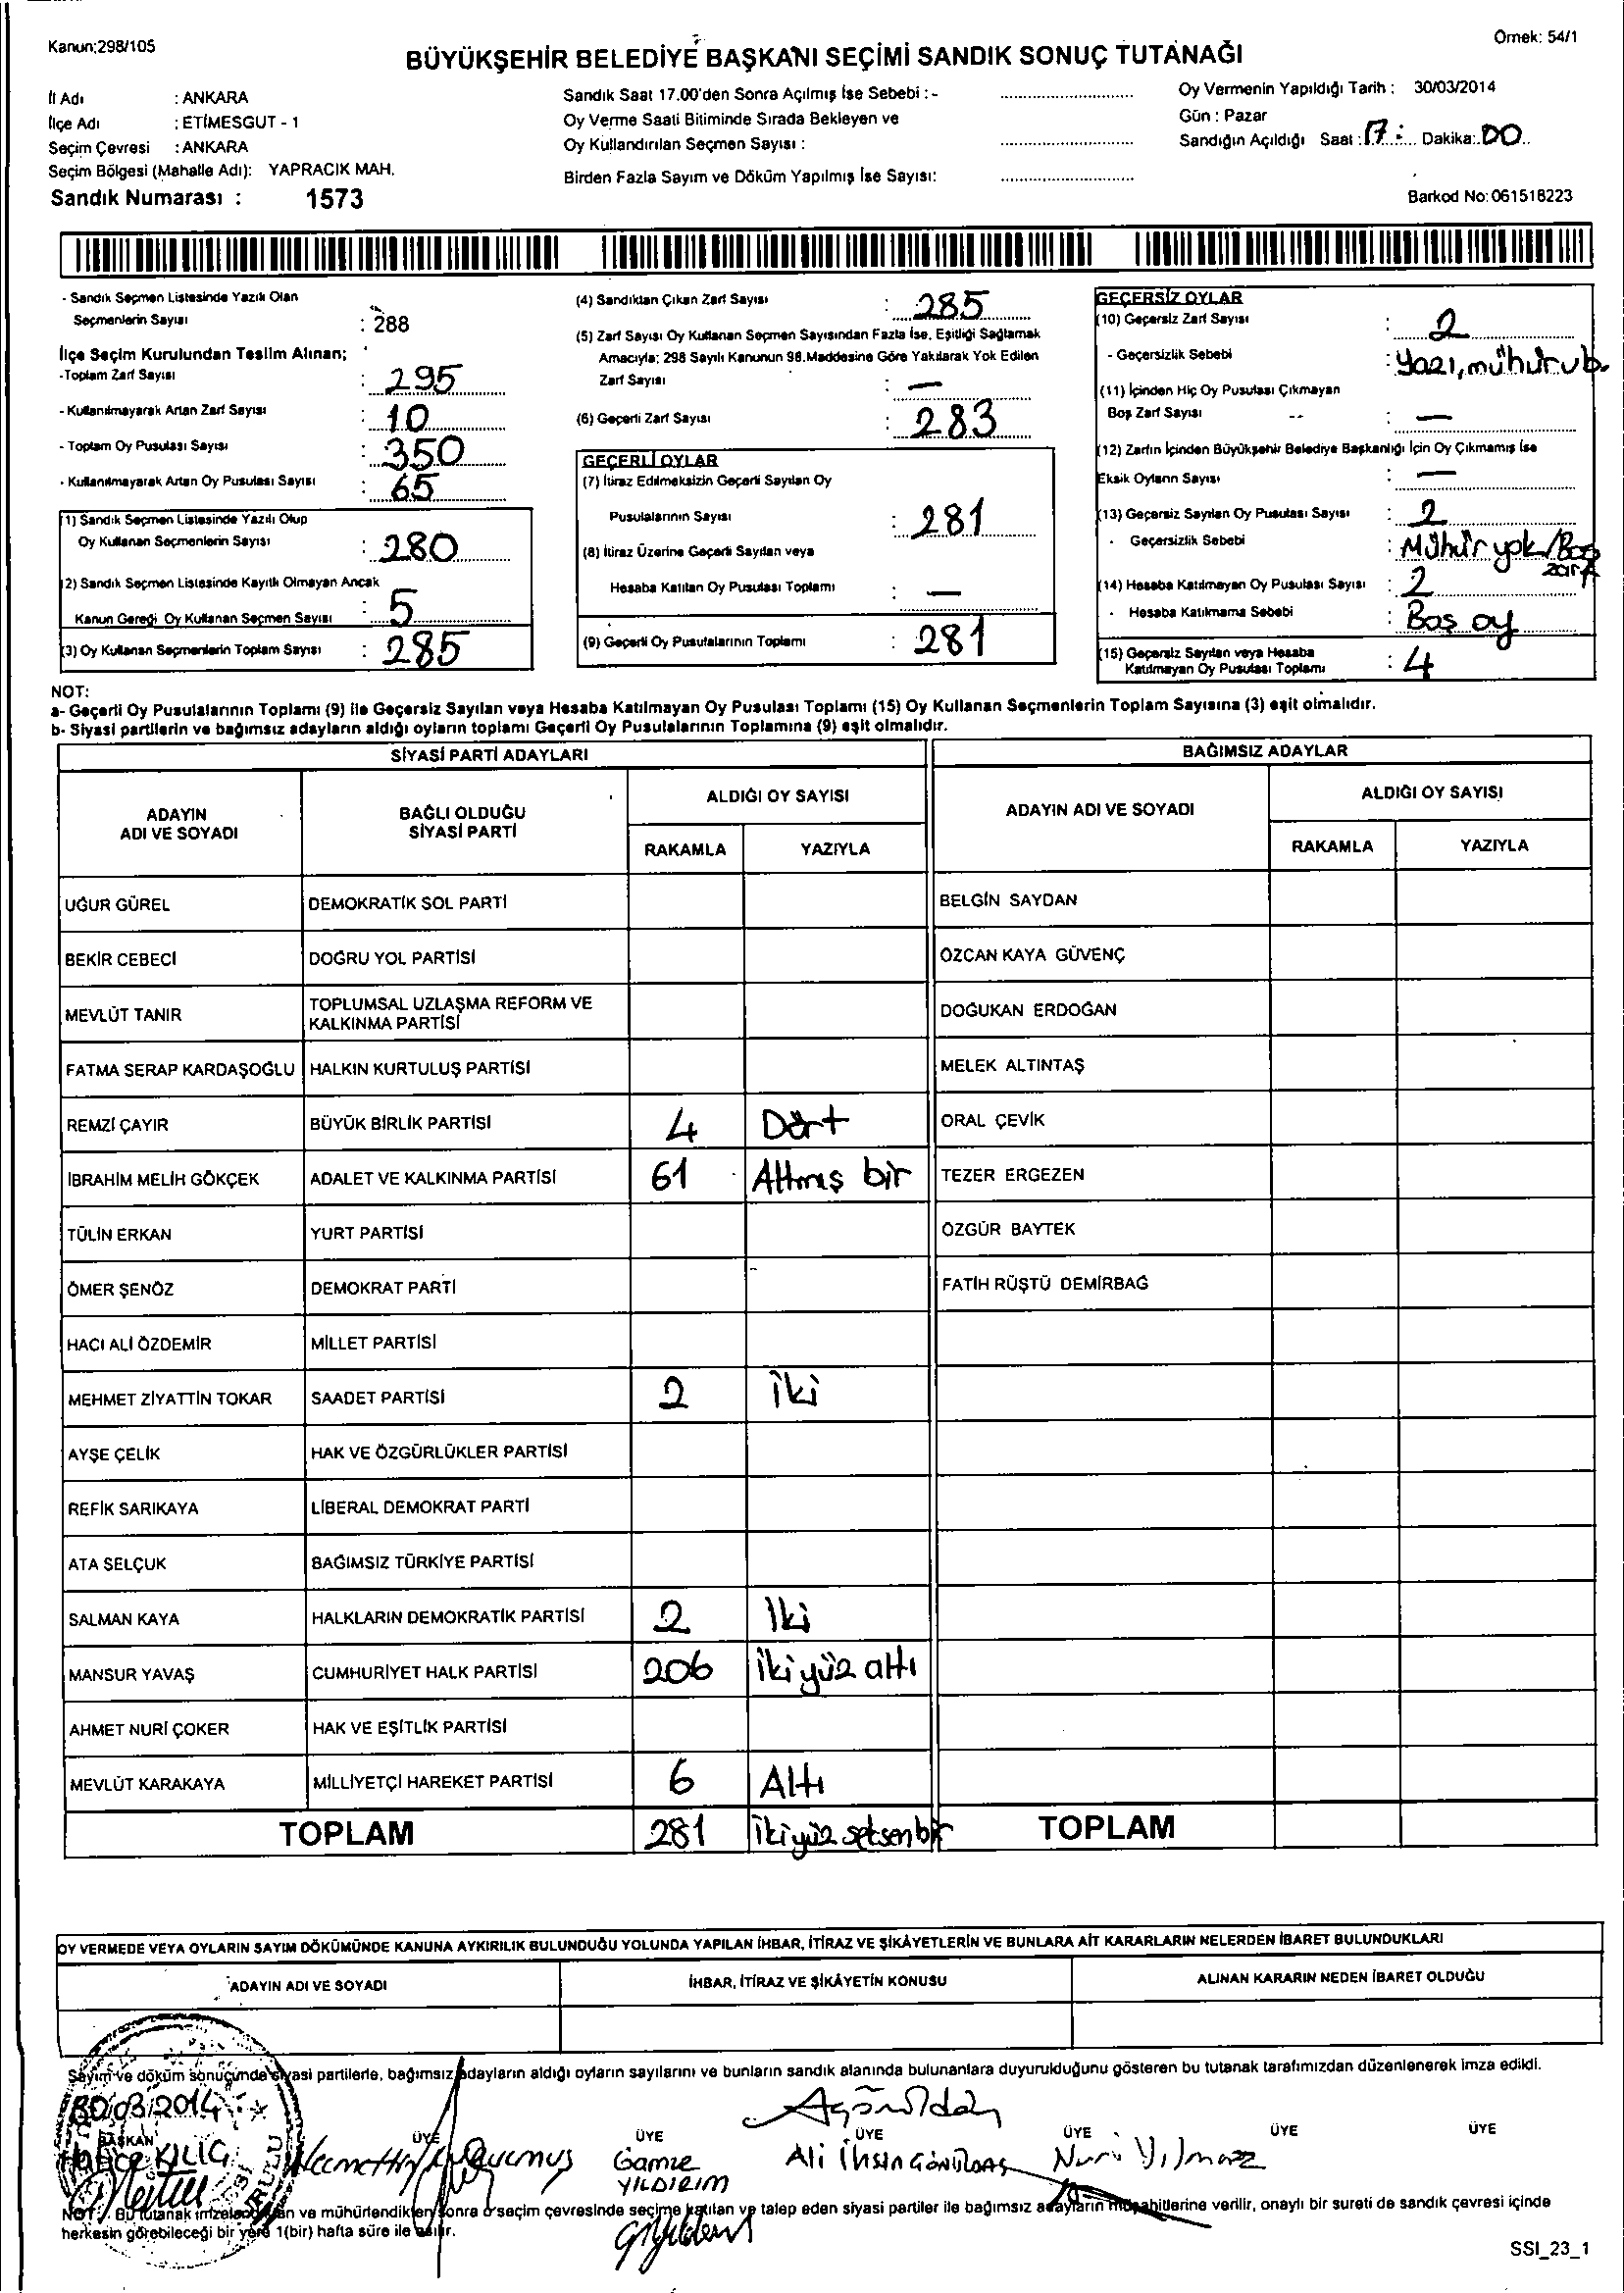 Kanun;298/105
Örnek: 54/1
BÜYÜKŞEHİR BELEDİYE BAŞKANI SEÇİMİ SANDIK SONUÇ TUTANAĞI
İl Adı : ANKARA
İlçe Adı : ETİMESGUT - 1
Seçim Çevresi : ANKARA
Seçim Bölgesi (Mahalle Adı): YAPRACIK MAH.
Sandık Numarası : 1573
Sandık Saat 17.00'den Sonra Açılmış İse Sebebi : -
Oy Verme Saati Bitiminde Sırada Bekleyen ve
Oy Kullandırılan Seçmen Sayısı :
Birden Fazla Sayım ve Döküm Yapılmış İse Sayısı:
Oy Vermenin Yapıldığı Tarih : 30/03/2014
Gün : Pazar
Sandığın Açıldığı Saat : 17 : Dakika: 00
Barkod No: 061518223
- Sandık Seçmen Listesinde Yazılı Olan
Seçmenlerin Sayısı : 288
İlçe Seçim Kurulundan Teslim Alınan;
-Toplam Zarf Sayısı : 295
- Kullanılmayarak Artan Zarf Sayısı : 10
- Toplam Oy Pusulası Sayısı : 350
- Kullanılmayarak Artan Oy Pusulası Sayısı : 65
(1) Sandık Seçmen Listesinde Yazılı Olup
Oy Kullanan Seçmenlerin Sayısı : 280
(2) Sandık Seçmen Listesinde Kayıtlı Olmayan Ancak
Kanun Gereği Oy Kullanan Seçmen Sayısı : 5
(3) Oy Kullanan Seçmenlerin Toplam Sayısı : 285
(4) Sandıktan Çıkan Zarf Sayısı : 285
(5) Zarf Sayısı Oy Kullanan Seçmen Sayısından Fazla İse, Eşitliği Sağlamak
Amacıyla; 298 Sayılı Kanunun 98.Maddesine Göre Yakılarak Yok Edilen
Zarf Sayısı : —
(6) Geçerli Zarf Sayısı : 283
GEÇERLİ OYLAR
(7) İtiraz Edilmeksizin Geçerli Sayılan Oy
Pusulalarının Sayısı : 281
(8) İtiraz Üzerine Geçerli Sayılan veya
Hesaba Katılan Oy Pusulası Toplamı : —
(9) Geçerli Oy Pusulalarının Toplamı : 281
GEÇERSİZ OYLAR
(10) Geçersiz Zarf Sayısı : 2
- Geçersizlik Sebebi : Yazı, mühür vb.
(11) İçinden Hiç Oy Pusulası Çıkmayan
Boş Zarf Sayısı -- : —
(12) Zarfın İçinden Büyükşehir Belediye Başkanlığı İçin Oy Çıkmamış İse
Eksik Oyların Sayısı : —
(13) Geçersiz Sayılan Oy Pusulası Sayısı : 2
- Geçersizlik Sebebi : Mühür yok/Boş
zarf
(14) Hesaba Katılmayan Oy Pusulası Sayısı : 2
- Hesaba Katılmama Sebebi : Boş oy
(15) Geçersiz Sayılan veya Hesaba
Katılmayan Oy Pusulası Toplamı : 4
NOT:
a- Geçerli Oy Pusulalarının Toplamı (9) ile Geçersiz Sayılan veya Hesaba Katılmayan Oy Pusulası Toplamı (15) Oy Kullanan Seçmenlerin Toplam Sayısına (3) eşit olmalıdır.
b- Siyasi partilerin ve bağımsız adayların aldığı oyların toplamı Geçerli Oy Pusulalarının Toplamına (9) eşit olmalıdır.
SİYASİ PARTİ ADAYLARI BAĞIMSIZ ADAYLAR
ADAYIN
ADI VE SOYADI
BAĞLI OLDUĞU
SİYASİ PARTİ
ALDIĞI OY SAYISI
RAKAMLA YAZIYLA
ADAYIN ADI VE SOYADI
ALDIĞI OY SAYISI
RAKAMLA YAZIYLA
UĞUR GÜREL DEMOKRATİK SOL PARTİ BELGİN SAYDAN
BEKİR CEBECİ DOĞRU YOL PARTİSİ ÖZCAN KAYA GÜVENÇ
MEVLÜT TANIR TOPLUMSAL UZLAŞMA REFORM VE
KALKINMA PARTİSİ DOĞUKAN ERDOĞAN
FATMA SERAP KARDAŞOĞLU HALKIN KURTULUŞ PARTİSİ MELEK ALTINTAŞ
REMZİ ÇAYIR BÜYÜK BİRLİK PARTİSİ 4 Dört ORAL ÇEVİK
İBRAHİM MELİH GÖKÇEK ADALET VE KALKINMA PARTİSİ 61 Altmış bir TEZER ERGEZEN
TÜLİN ERKAN YURT PARTİSİ ÖZGÜR BAYTEK
ÖMER ŞENÖZ DEMOKRAT PARTİ FATİH RÜŞTÜ DEMİRBAĞ
HACI ALİ ÖZDEMİR MİLLET PARTİSİ
MEHMET ZİYATTİN TOKAR SAADET PARTİSİ 2 İki
AYŞE ÇELİK HAK VE ÖZGÜRLÜKLER PARTİSİ
REFİK SARIKAYA LİBERAL DEMOKRAT PARTİ
ATA SELÇUK BAĞIMSIZ TÜRKİYE PARTİSİ
SALMAN KAYA HALKLARIN DEMOKRATİK PARTİSİ 2 İki
MANSUR YAVAŞ CUMHURİYET HALK PARTİSİ 206 İkiyüz altı
AHMET NURİ ÇOKER HAK VE EŞİTLİK PARTİSİ
MEVLÜT KARAKAYA MİLLİYETÇİ HAREKET PARTİSİ 6 Altı
TOPLAM 281 İkiyüz seksen bir TOPLAM
OY VERMEDE VEYA OYLARIN SAYIM DÖKÜMÜNDE KANUNA AYKIRILIK BULUNDUĞU YOLUNDA YAPILAN İHBAR, İTİRAZ VE ŞİKÂYETLERİN VE BUNLARA AİT KARARLARIN NELERDEN İBARET BULUNDUKLARI
ADAYIN ADI VE SOYADI İHBAR, İTİRAZ VE ŞİKÂYETİN KONUSU ALINAN KARARIN NEDEN İBARET OLDUĞU
Sayım ve döküm sonucunda siyasi partilerle, bağımsız adayların aldığı oyların sayılarını ve bunların sandık alanında bulunanlara duyurulduğunu gösteren bu tutanak tarafımızdan düzenlenerek imza edildi.
30/03/2014
BAŞKAN ÜYE ÜYE ÜYE ÜYE ÜYE ÜYE
Hatice KILIÇ Gamze Ali İhsan Nuri Yılmaz
YILDIRIM
NOT: Bu tutanak imzalandıktan ve mühürlendikten sonra o seçim çevresinde seçime katılan ve talep eden siyasi partiler ile bağımsız adayların müşahitlerine verilir, onaylı bir sureti de sandık çevresi içinde
herkesin görebileceği bir yere 1(bir) hafta süre ile asılır.
SSI_23_1